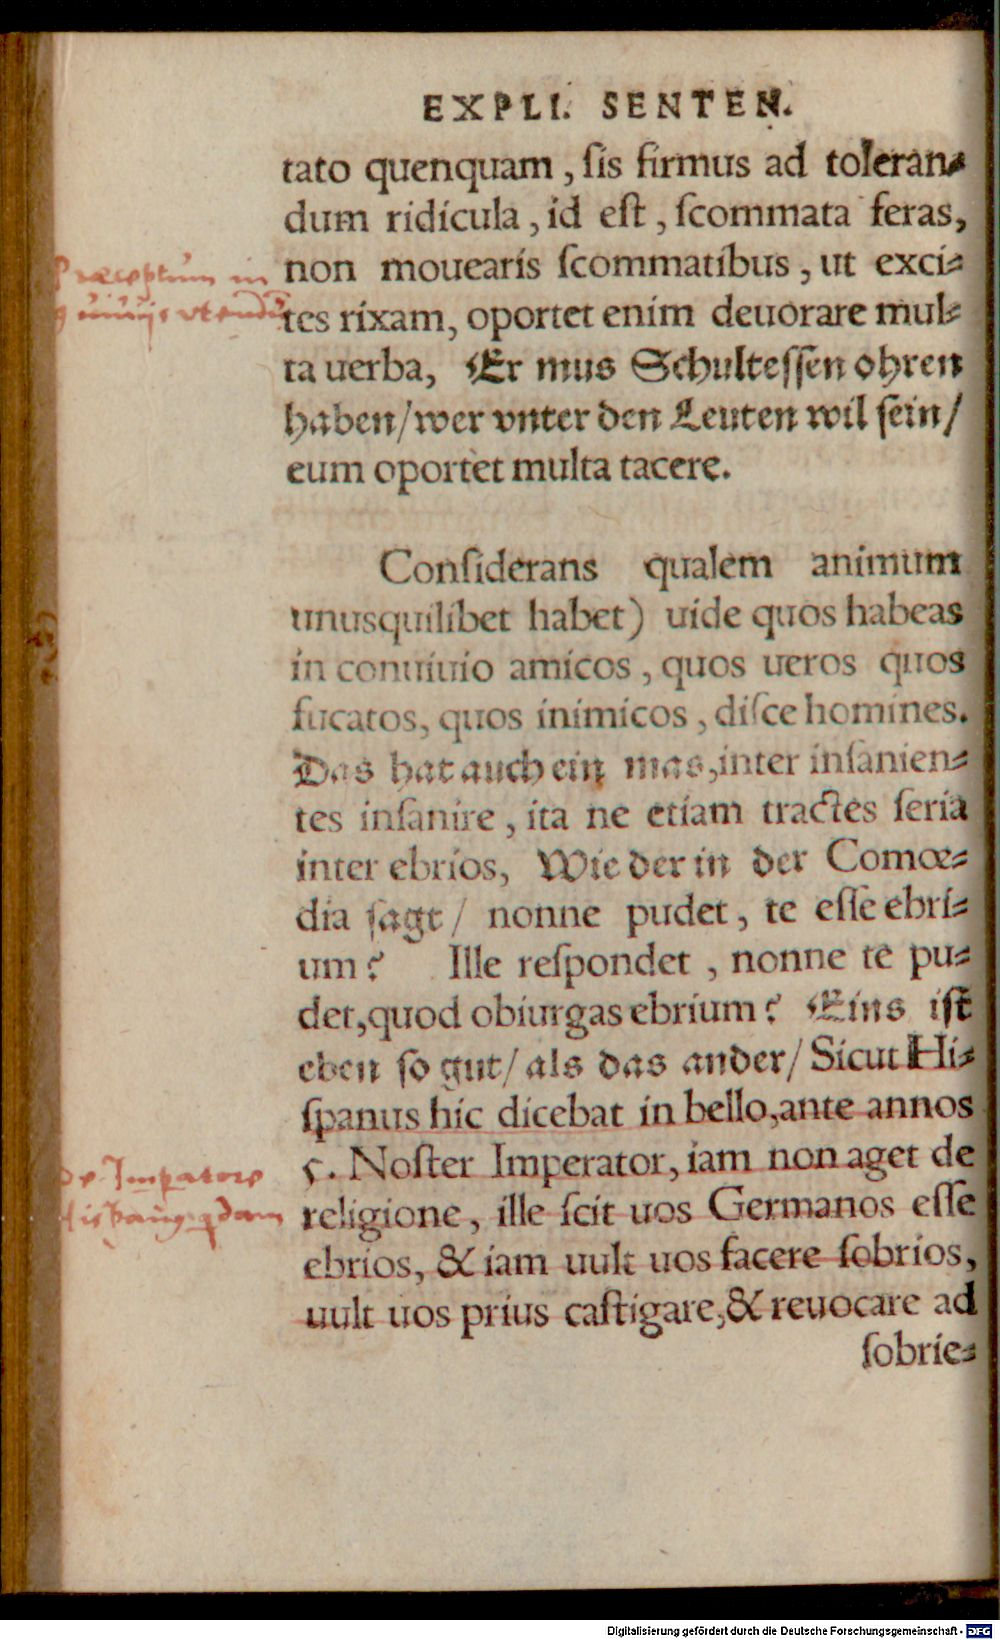 EXPLI. SENTEN.
tato quenquam, ſis firmus ad toleran⸗
dum ridicula, id eſt, ſcommata feras,
non mouearis ſcommatibus, ut exci⸗
tes rixam, oportet enim deuorare mul⸗
ta uerba, Er mus Schulteſſen ohren
haben/wer vnter den Leuten wil ſein/
eum oportet multa tacere.
Præceptum in
utendū
Conſiderans qualem animum
unusquilibet habet) uide quos habeas
in conuiuio amicos, quos ueros quos
fucatos, quos inimicos, diſce homines.
Das hat auch ein mas, inter inſanien⸗
tes inſanire, ita ne etiam tractes ſeria
inter ebrios, Wie der in der Comœ⸗
dia ſagt/ nonne pudet, te eſſe ebri⸗
um? Ille reſpondet, nonne te pu⸗
det, quod obiurgas ebrium? Eins iſt
eben ſo gut/ als das ander/ Sicut Hi⸗
ſpanus hic dicebat in bello, ante annos
5. Noſter Imperator, iam non aget de
religione, ille ſcit uos Germanos eſſe
ebrios, & iam uult uos facere ſobrios,
uult uos prius caſtigare, & reuocare ad
ſobrie⸗
de Imperatore
Digitalisierung gefördert durch die Deutsche Forschungsgemeinschaft - DFG